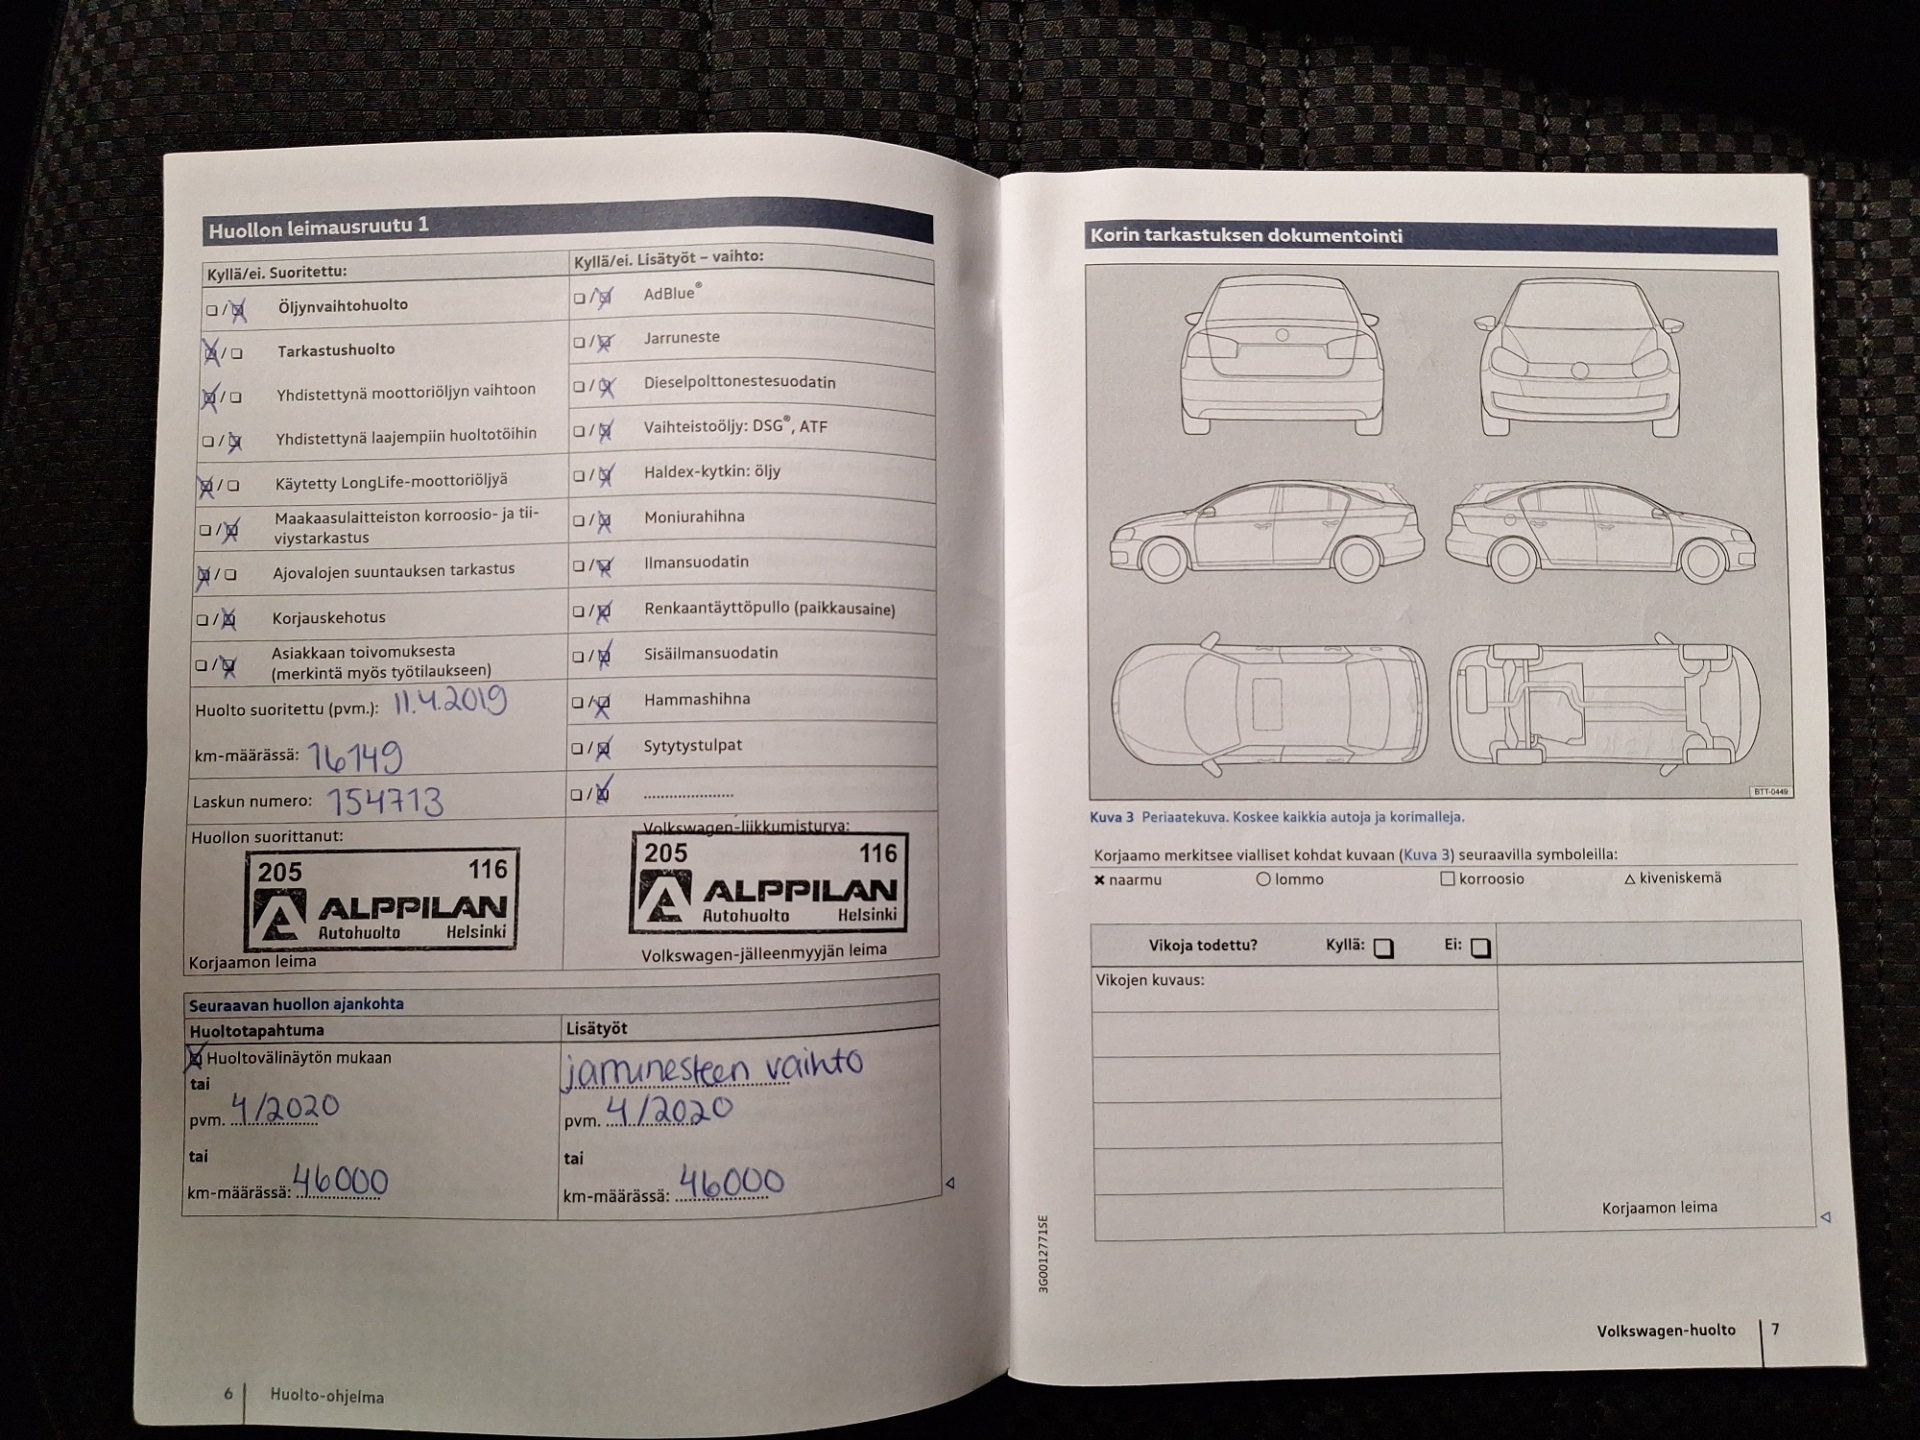 Huollon leimausruutu 1
Kyllä/ei. Suoritettu:
Öljynvaihtohuolto
Tarkastushuolto
Yhdistettynä moottoriöljyn vaihtoon
Yhdistettynä laajempiin huoltotöihin
Käytetty LongLife-moottoriöljyä
Maakaasulaitteiston korroosio- ja tii-
viystarkastus
Ajovalojen suuntauksen tarkastus
Korjauskehotus
Asiakkaan toivomuksesta
(merkintä myös työtilaukseen)
Huolto suoritettu (pvm.): 11.4.2019
km-määrässä: 16149
Laskun numero: 154713
Huollon suorittanut:
205 116
ALPPILAN
Autohuolto Helsinki
Korjaamon leima
Kyllä/ei. Lisätyöt – vaihto:
AdBlue®
Jarruneste
Dieselpolttonestesuodatin
Vaihteistoöljy: DSG®, ATF
Haldex-kytkin: öljy
Moniurahihna
Ilmansuodatin
Renkaantäyttöpullo (paikkausaine)
Sisäilmansuodatin
Hammashihna
Sytytystulpat
....................
Volkswagen-liikkumisturva:
205 116
ALPPILAN
Autohuolto Helsinki
Volkswagen-jälleenmyyjän leima
Seuraavan huollon ajankohta
Huoltotapahtuma
Huoltovälinäytön mukaan
tai
pvm. 4/2020
tai
km-määrässä: 46000
Lisätyöt
jarrunesteen vaihto
pvm. 4/2020
tai
km-määrässä: 46000
6 Huolto-ohjelma
Korin tarkastuksen dokumentointi
BTT-0449
Kuva 3 Periaatekuva. Koskee kaikkia autoja ja korimalleja.
Korjaamo merkitsee vialliset kohdat kuvaan (Kuva 3) seuraavilla symboleilla:
✖ naarmu ○ lommo □ korroosio △ kiveniskemä
Vikoja todettu? Kyllä: Ei:
Vikojen kuvaus:
Korjaamon leima
3G0012771SE
Volkswagen-huolto 7